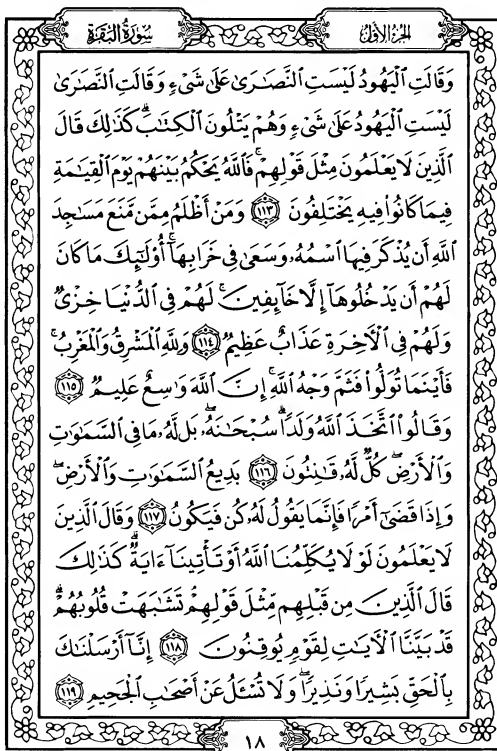 سُورَةُ الْبَقَرَةِ
الجُزءُ الأَوَّلُ
وَقَالَتِ ٱلْيَهُودُ لَيْسَتِ ٱلنَّصَٰرَىٰ عَلَىٰ شَىْءٍ وَقَالَتِ ٱلنَّصَٰرَىٰ
لَيْسَتِ ٱلْيَهُودُ عَلَىٰ شَىْءٍ وَهُمْ يَتْلُونَ ٱلْكِتَٰبَ ۗ كَذَٰلِكَ قَالَ
ٱلَّذِينَ لَا يَعْلَمُونَ مِثْلَ قَوْلِهِمْ ۚ فَٱللَّهُ يَحْكُمُ بَيْنَهُمْ يَوْمَ ٱلْقِيَٰمَةِ
فِيمَا كَانُوا۟ فِيهِ يَخْتَلِفُونَ ١١٣ وَمَنْ أَظْلَمُ مِمَّن مَّنَعَ مَسَٰجِدَ
ٱللَّهِ أَن يُذْكَرَ فِيهَا ٱسْمُهُۥ وَسَعَىٰ فِى خَرَابِهَآ ۚ أُو۟لَٰٓئِكَ مَا كَانَ
لَهُمْ أَن يَدْخُلُوهَآ إِلَّا خَآئِفِينَ ۚ لَهُمْ فِى ٱلدُّنْيَا خِزْىٌ
وَلَهُمْ فِى ٱلْءَاخِرَةِ عَذَابٌ عَظِيمٌ ١١٤ وَلِلَّهِ ٱلْمَشْرِقُ وَٱلْمَغْرِبُ ۚ
فَأَيْنَمَا تُوَلُّوا۟ فَثَمَّ وَجْهُ ٱللَّهِ ۚ إِنَّ ٱللَّهَ وَٰسِعٌ عَلِيمٌ ١١٥
وَقَالُوا۟ ٱتَّخَذَ ٱللَّهُ وَلَدًا ۗ سُبْحَٰنَهُۥ ۖ بَل لَّهُۥ مَا فِى ٱلسَّمَٰوَٰتِ
وَٱلْأَرْضِ ۖ كُلٌّ لَّهُۥ قَٰنِتُونَ ١١٦ بَدِيعُ ٱلسَّمَٰوَٰتِ وَٱلْأَرْضِ ۖ
وَإِذَا قَضَىٰٓ أَمْرًا فَإِنَّمَا يَقُولُ لَهُۥ كُن فَيَكُونُ ١١٧ وَقَالَ ٱلَّذِينَ
لَا يَعْلَمُونَ لَوْلَا يُكَلِّمُنَا ٱللَّهُ أَوْ تَأْتِينَآ ءَايَةٌ ۗ كَذَٰلِكَ
قَالَ ٱلَّذِينَ مِن قَبْلِهِم مِّثْلَ قَوْلِهِمْ ۘ تَشَٰبَهَتْ قُلُوبُهُمْ ۗ
قَدْ بَيَّنَّا ٱلْءَايَٰتِ لِقَوْمٍ يُوقِنُونَ ١١٨ إِنَّآ أَرْسَلْنَٰكَ
بِٱلْحَقِّ بَشِيرًا وَنَذِيرًا ۖ وَلَا تُسْـَٔلُ عَنْ أَصْحَٰبِ ٱلْجَحِيمِ ١١٩
١٨